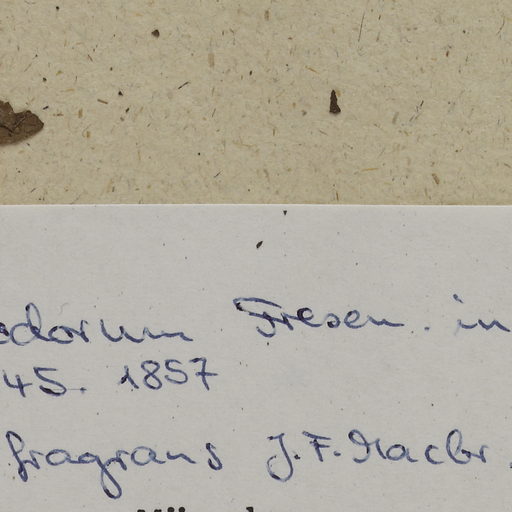 odorum Fresen. in
45. 1857
fragrans J.F.Macbr.